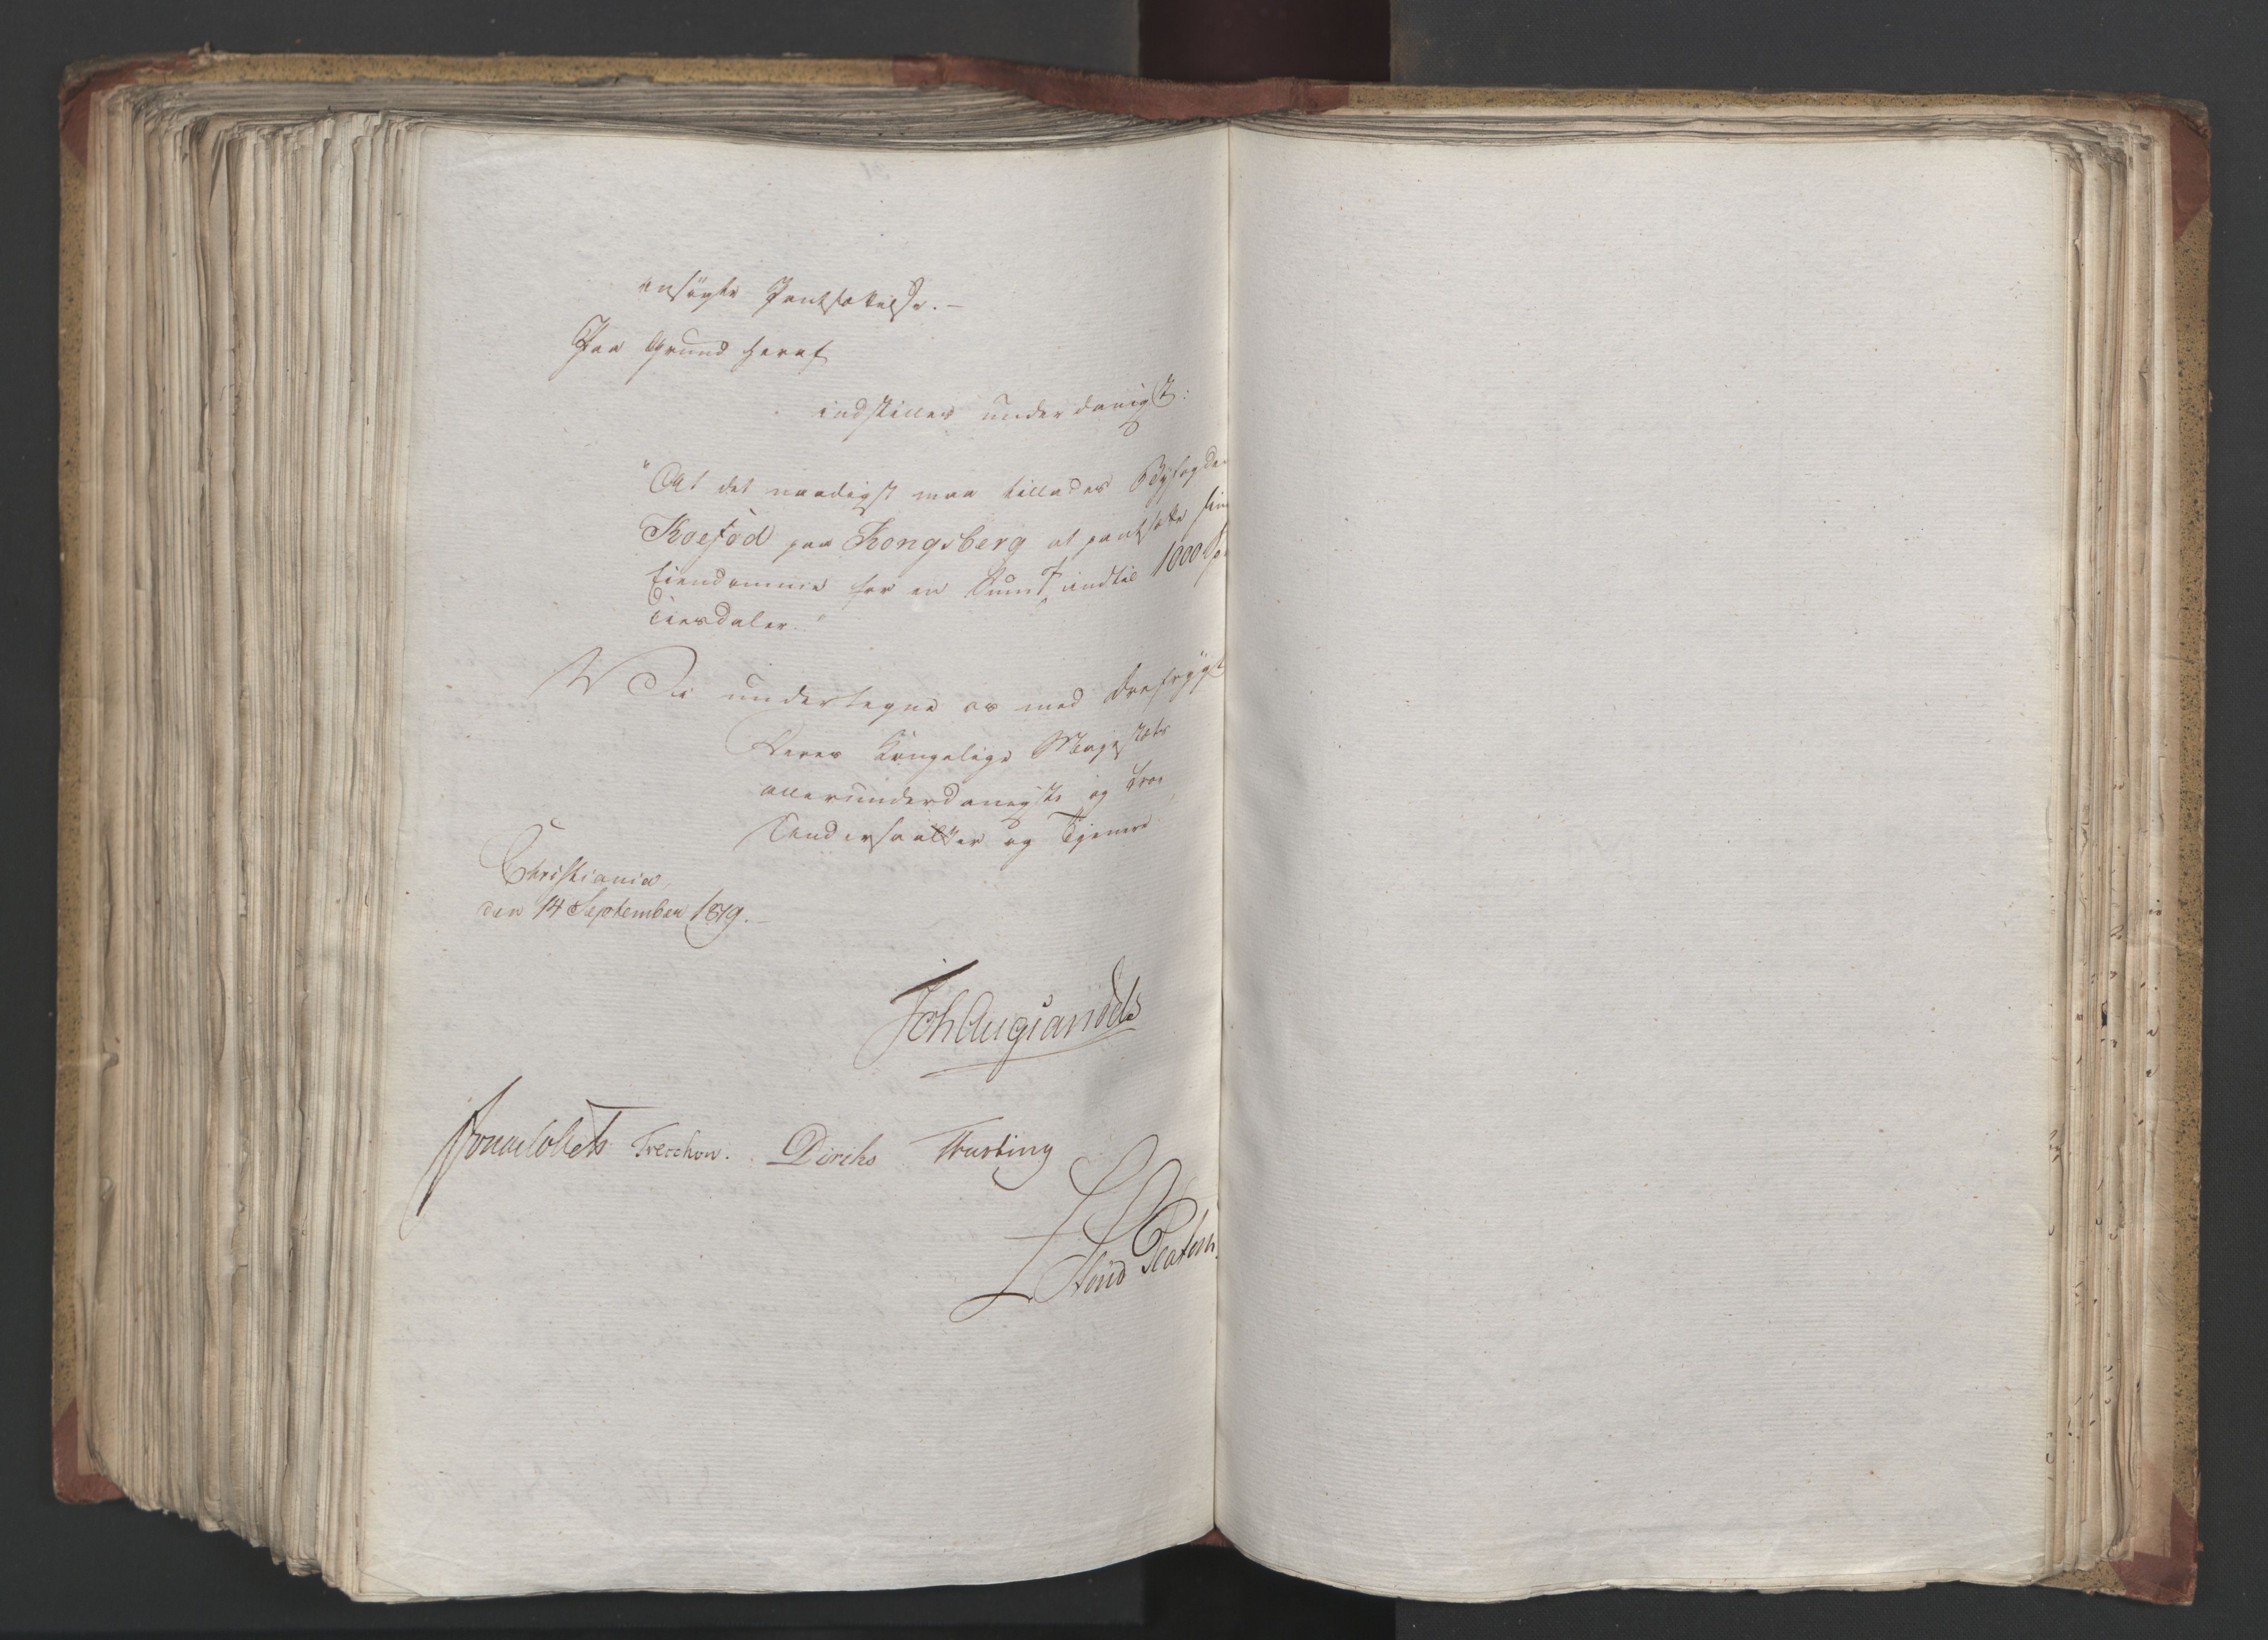 ansøgte Pantsættelse. —
Paa Grund heraf
indstilles underdanigst:
"At det naadigst maa tillades Byfogden
Koefod paa Kongsberg at pantsætte sin
Eiendomme for en Sum af indtil 1000 Spe
ciesdaler."
Vi undertegne os med Ærefrygt
Deres Kongelige Majestæts
allerunderdanigste og troe
Undersaatter og Tjenere
Christiania,
den 14 September 1819. —
Joh Aug Sandels
Jonas Collett Treschow. Diriks Krusting
L Stoud Platou